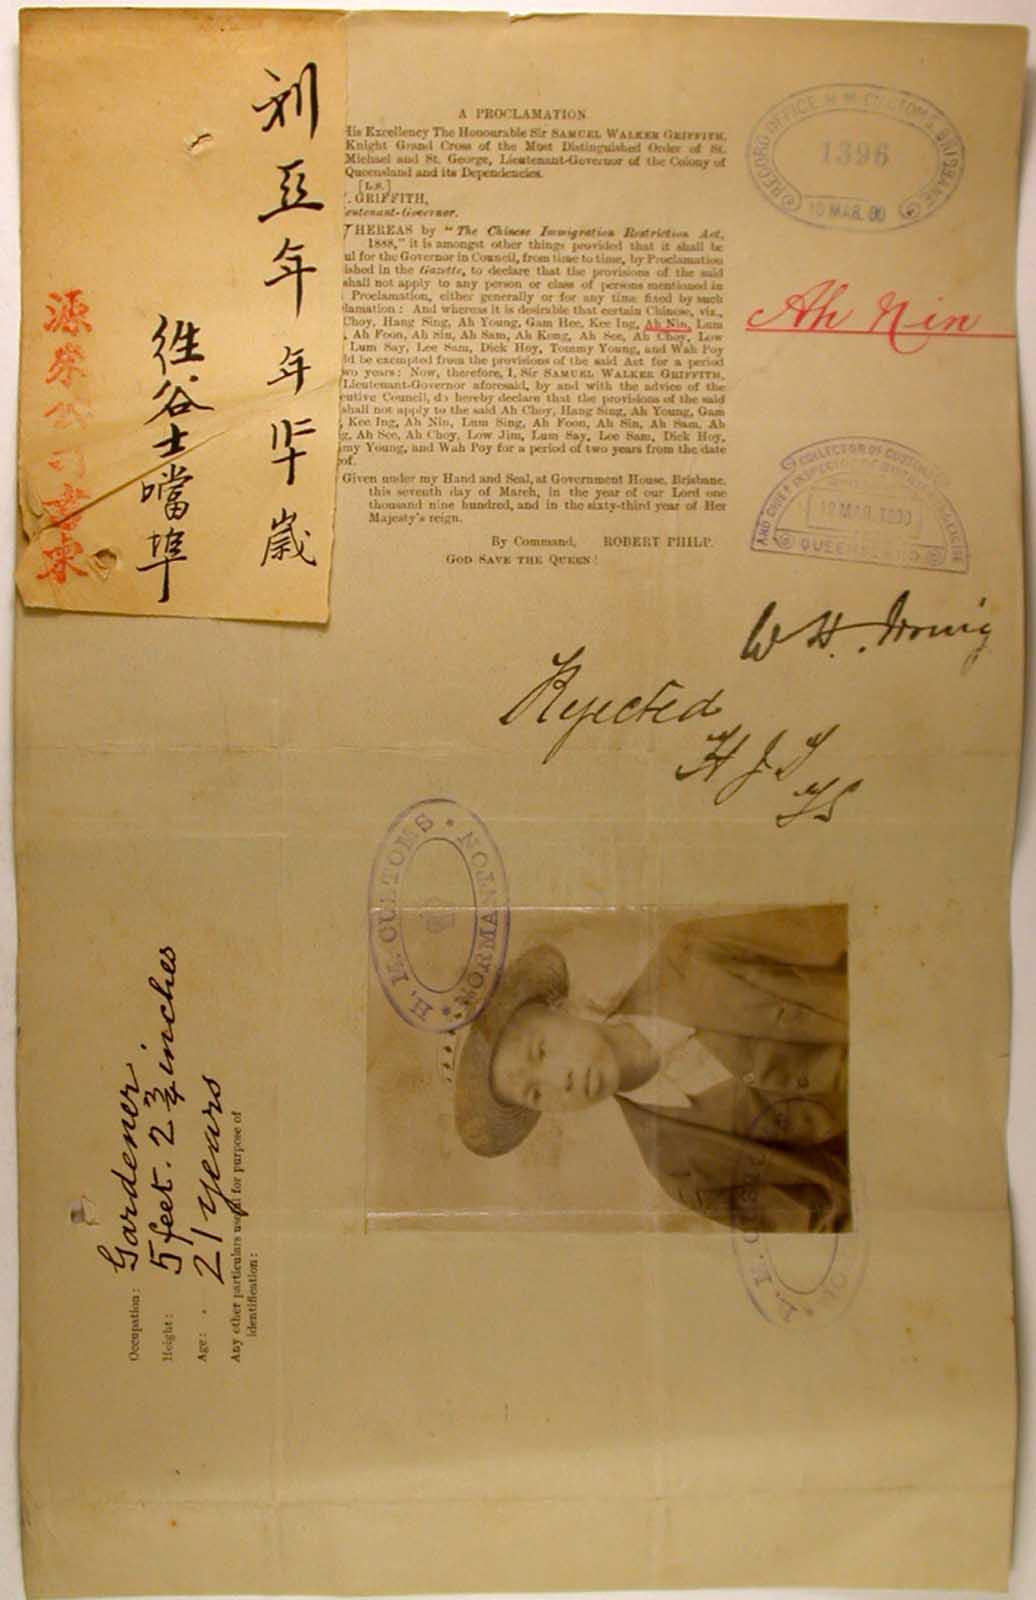 刘亚年年廿岁
往谷士噹埠
源
A PROCLAMATION
His Excellency The Honourable Sir SAMUEL WALKER GRIFFITH,
Knight Grand Cross of the Most Distinguished Order of St.
Michael and St. George, Lieutenant-Governor of the Colony of
Queensland and its Dependencies.
[L.S.]
GRIFFITH,
eutenant-Governor.
HEREAS by "The Chinese Immigration Restriction Act,
1888," it is amongst other things provided that it shall be
ul for the Governor in Council, from time to time, by Proclamation
lished in the Gazette, to declare that the provisions of the said
shall not apply to any person or class of persons mentioned in
Proclamation, either generally or for any time fixed by such
lamation: And whereas it is desirable that certain Chinese, viz.,
Choy, Hang Sing, Ah Young, Gam Hee, Kee Ing, Ah Nin, Lum
, Ah Foon, Ah Sin, Ah Sam, Ah Kong, Ah See, Ah Choy, Low
Lum Say, Lee Sam, Dick Hoy, Tommy Young, and Wah Poy
ld be exempted from the provisions of the said Act for a period
wo years: Now, therefore, I, Sir SAMUEL WALKER GRIFFITH,
Lieutenant-Governor aforesaid, by and with the advice of the
cutive Council, do hereby declare that the provisions of the said
shall not apply to the said Ah Choy, Hang Sing, Ah Young, Gam
, Kee Ing, Ah Nin, Lum Sing, Ah Foon, Ah Sin, Ah Sam, Ah
g, Ah See, Ah Choy, Low Jim, Lum Say, Lee Sam, Dick Hoy,
my Young, and Wah Poy for a period of two years from the date
of.
Given under my Hand and Seal, at Government House, Brisbane,
this seventh day of March, in the year of our Lord one
thousand nine hundred, and in the sixty-third year of Her
Majesty's reign.
By Command, ROBERT PHILP.
GOD SAVE THE QUEEN!
RECORD OFFICE, H.M. CUSTOMS, BRISBANE
1396
10 MAR. 00
Ah Nin
COLLECTOR OF CUSTOMS
AND CHIEF INSPECTOR OF
MAR. 1900
QUEENSLAND
W H.
Rejected
H J
H. M. CUSTOMS
NORMANTON
Occupation: Gardener
Height: 5 feet. 2 3/4 inches
Age: 21 years
Any other particulars useful for purpose of
identification: